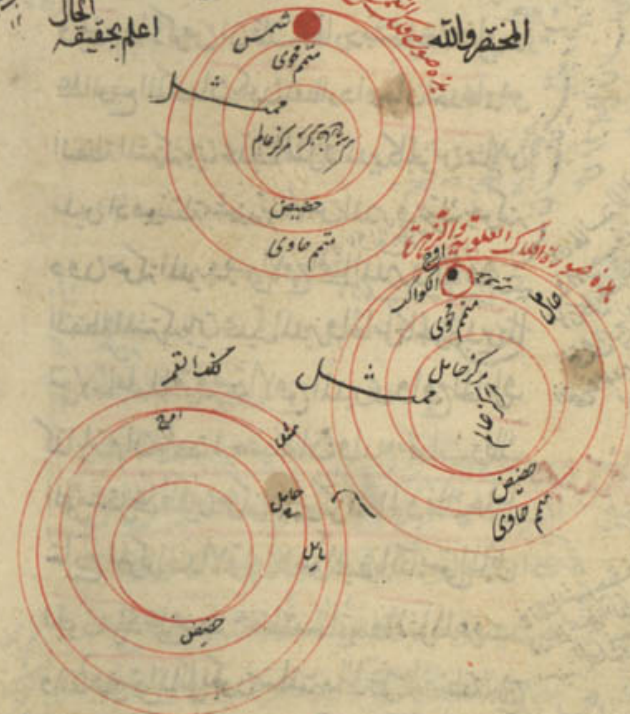 المختصر والله
اعلم بحقيقة
الحال
هذه صورة فلك
شمس
متمم محوى
ممثل
مركز عالم
حضيض
متمم حاوى
هذه صورة افلاك العلوية والزهرة
اوج
الكواكب
متمم محوى
مركز حامل
ممثل
حضيض
متمم
حاوى
فلك القمر
اوج
ممثل
حامل
مايل
حضيض